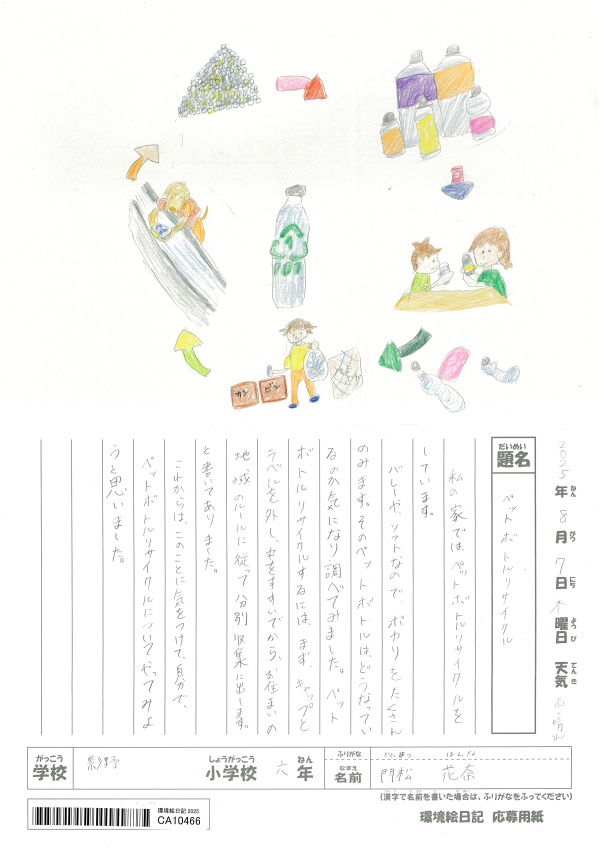 カン
ビン
2025年8月7日木曜日 天気 雨・晴れ
ねん
がつ
にち
ようび
てんき
だいめい
題名
ペットボトルリサイクル
私の家では、ペットボトルリサイクルを
しています。
バレーや、ソフトなので、ポカリをたくさん
のみます。そのペットボトルは、どうなってい
るのか気になり調べてみました。ペット
ボトルリサイクルするには、まず、キャップと
ラベルを外し、中をすすいでから、お住まいの
地域のルールに従って分別収集に出します。
と書いてありました。
これからは、このことに気をつけて、自分で、
ペットボトルリサイクルについてやってみよ
うと思いました。
がっこう
学校
しょうがっこう
小学校
六
ねん
年
ふりがな
かどまつ はんな
なまえ
名前
門松 花奈
(漢字で名前を書いた場合は、ふりがなをふってください)
環境絵日記 2025
CA10466
環境絵日記 応募用紙